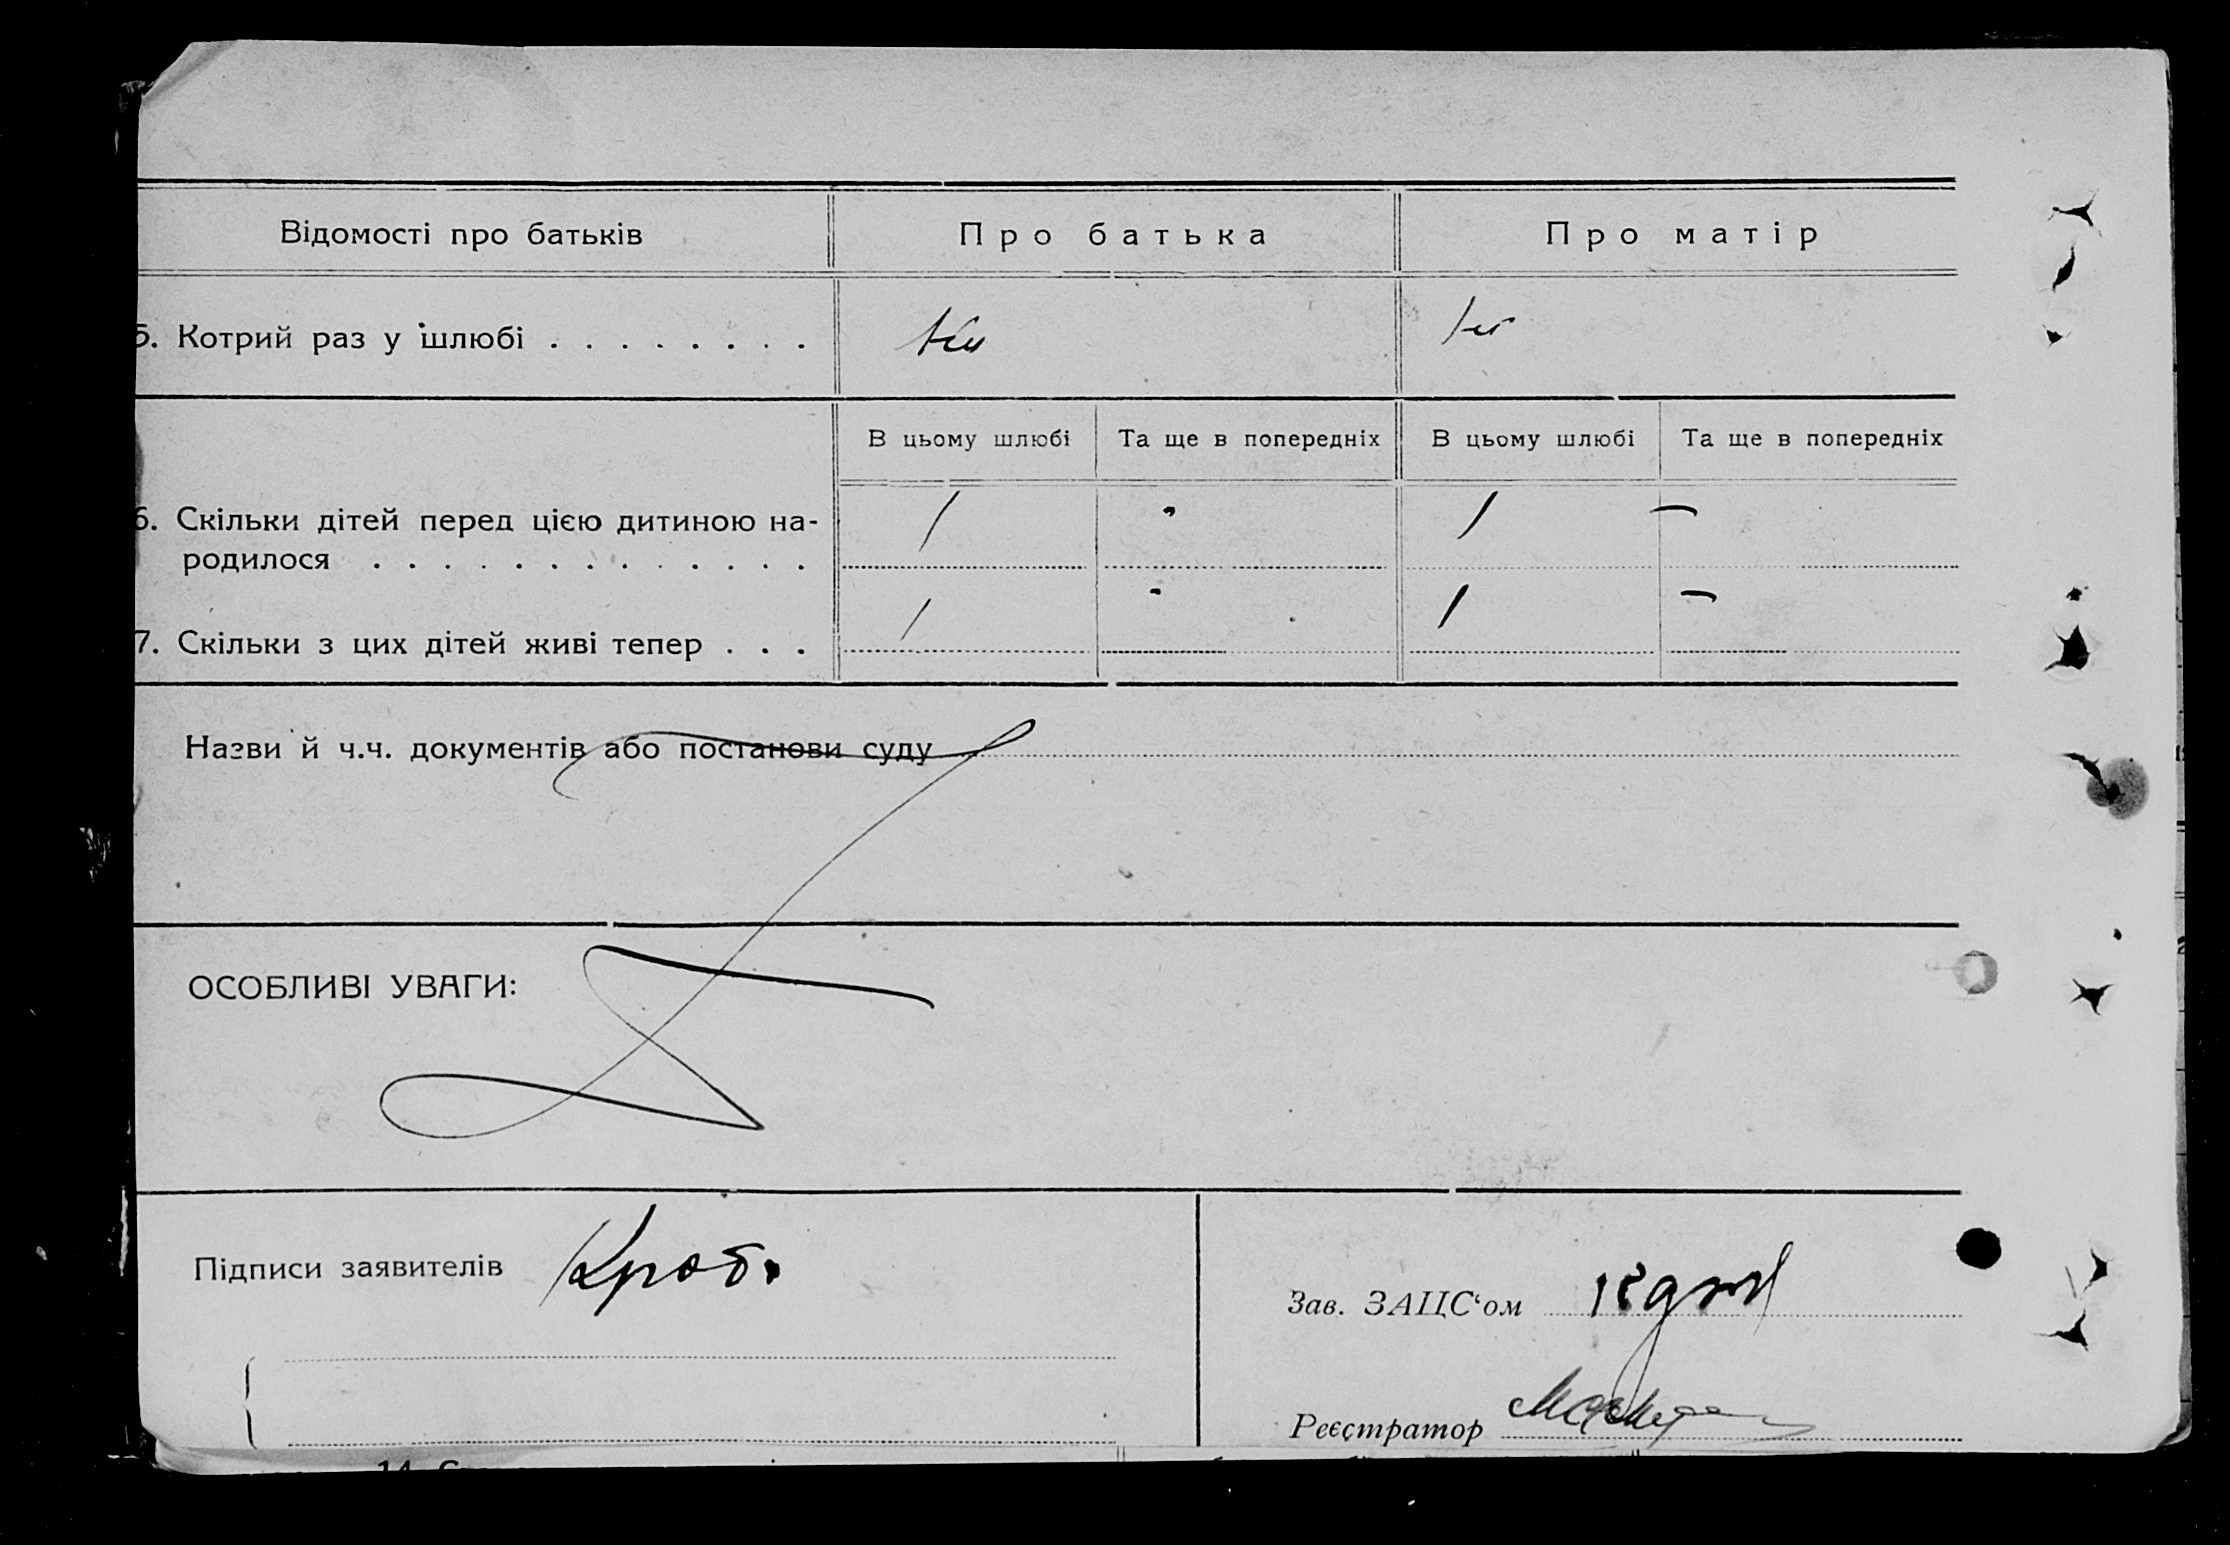 Відомості про батьків Про батька Про матір
5. Котрий раз у шлюбі . . . . . . . .
В цьому шлюбі Та ще в попередніх В цьому шлюбі Та ще в попередніх
6. Скільки дітей перед цією дитиною на- 1 " 1 —
родилося . . . . . . . . . . . . .
7. Скільки з цих дітей живі тепер . . . 1 " 1 —
Назви й ч.ч. документів або постанови суду
ОСОБЛИВІ УВАГИ:
Підписи заявителів
Зав. ЗАЦС‘ом
Реєстратор